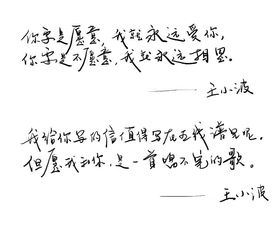 你要是愿意，我就永远爱你，
你要是不愿意，我就永远相思。
—— 王小波
我给你写的信值得写在五线谱里呢。
但愿我和你，是一首唱不完的歌。
—— 王小波